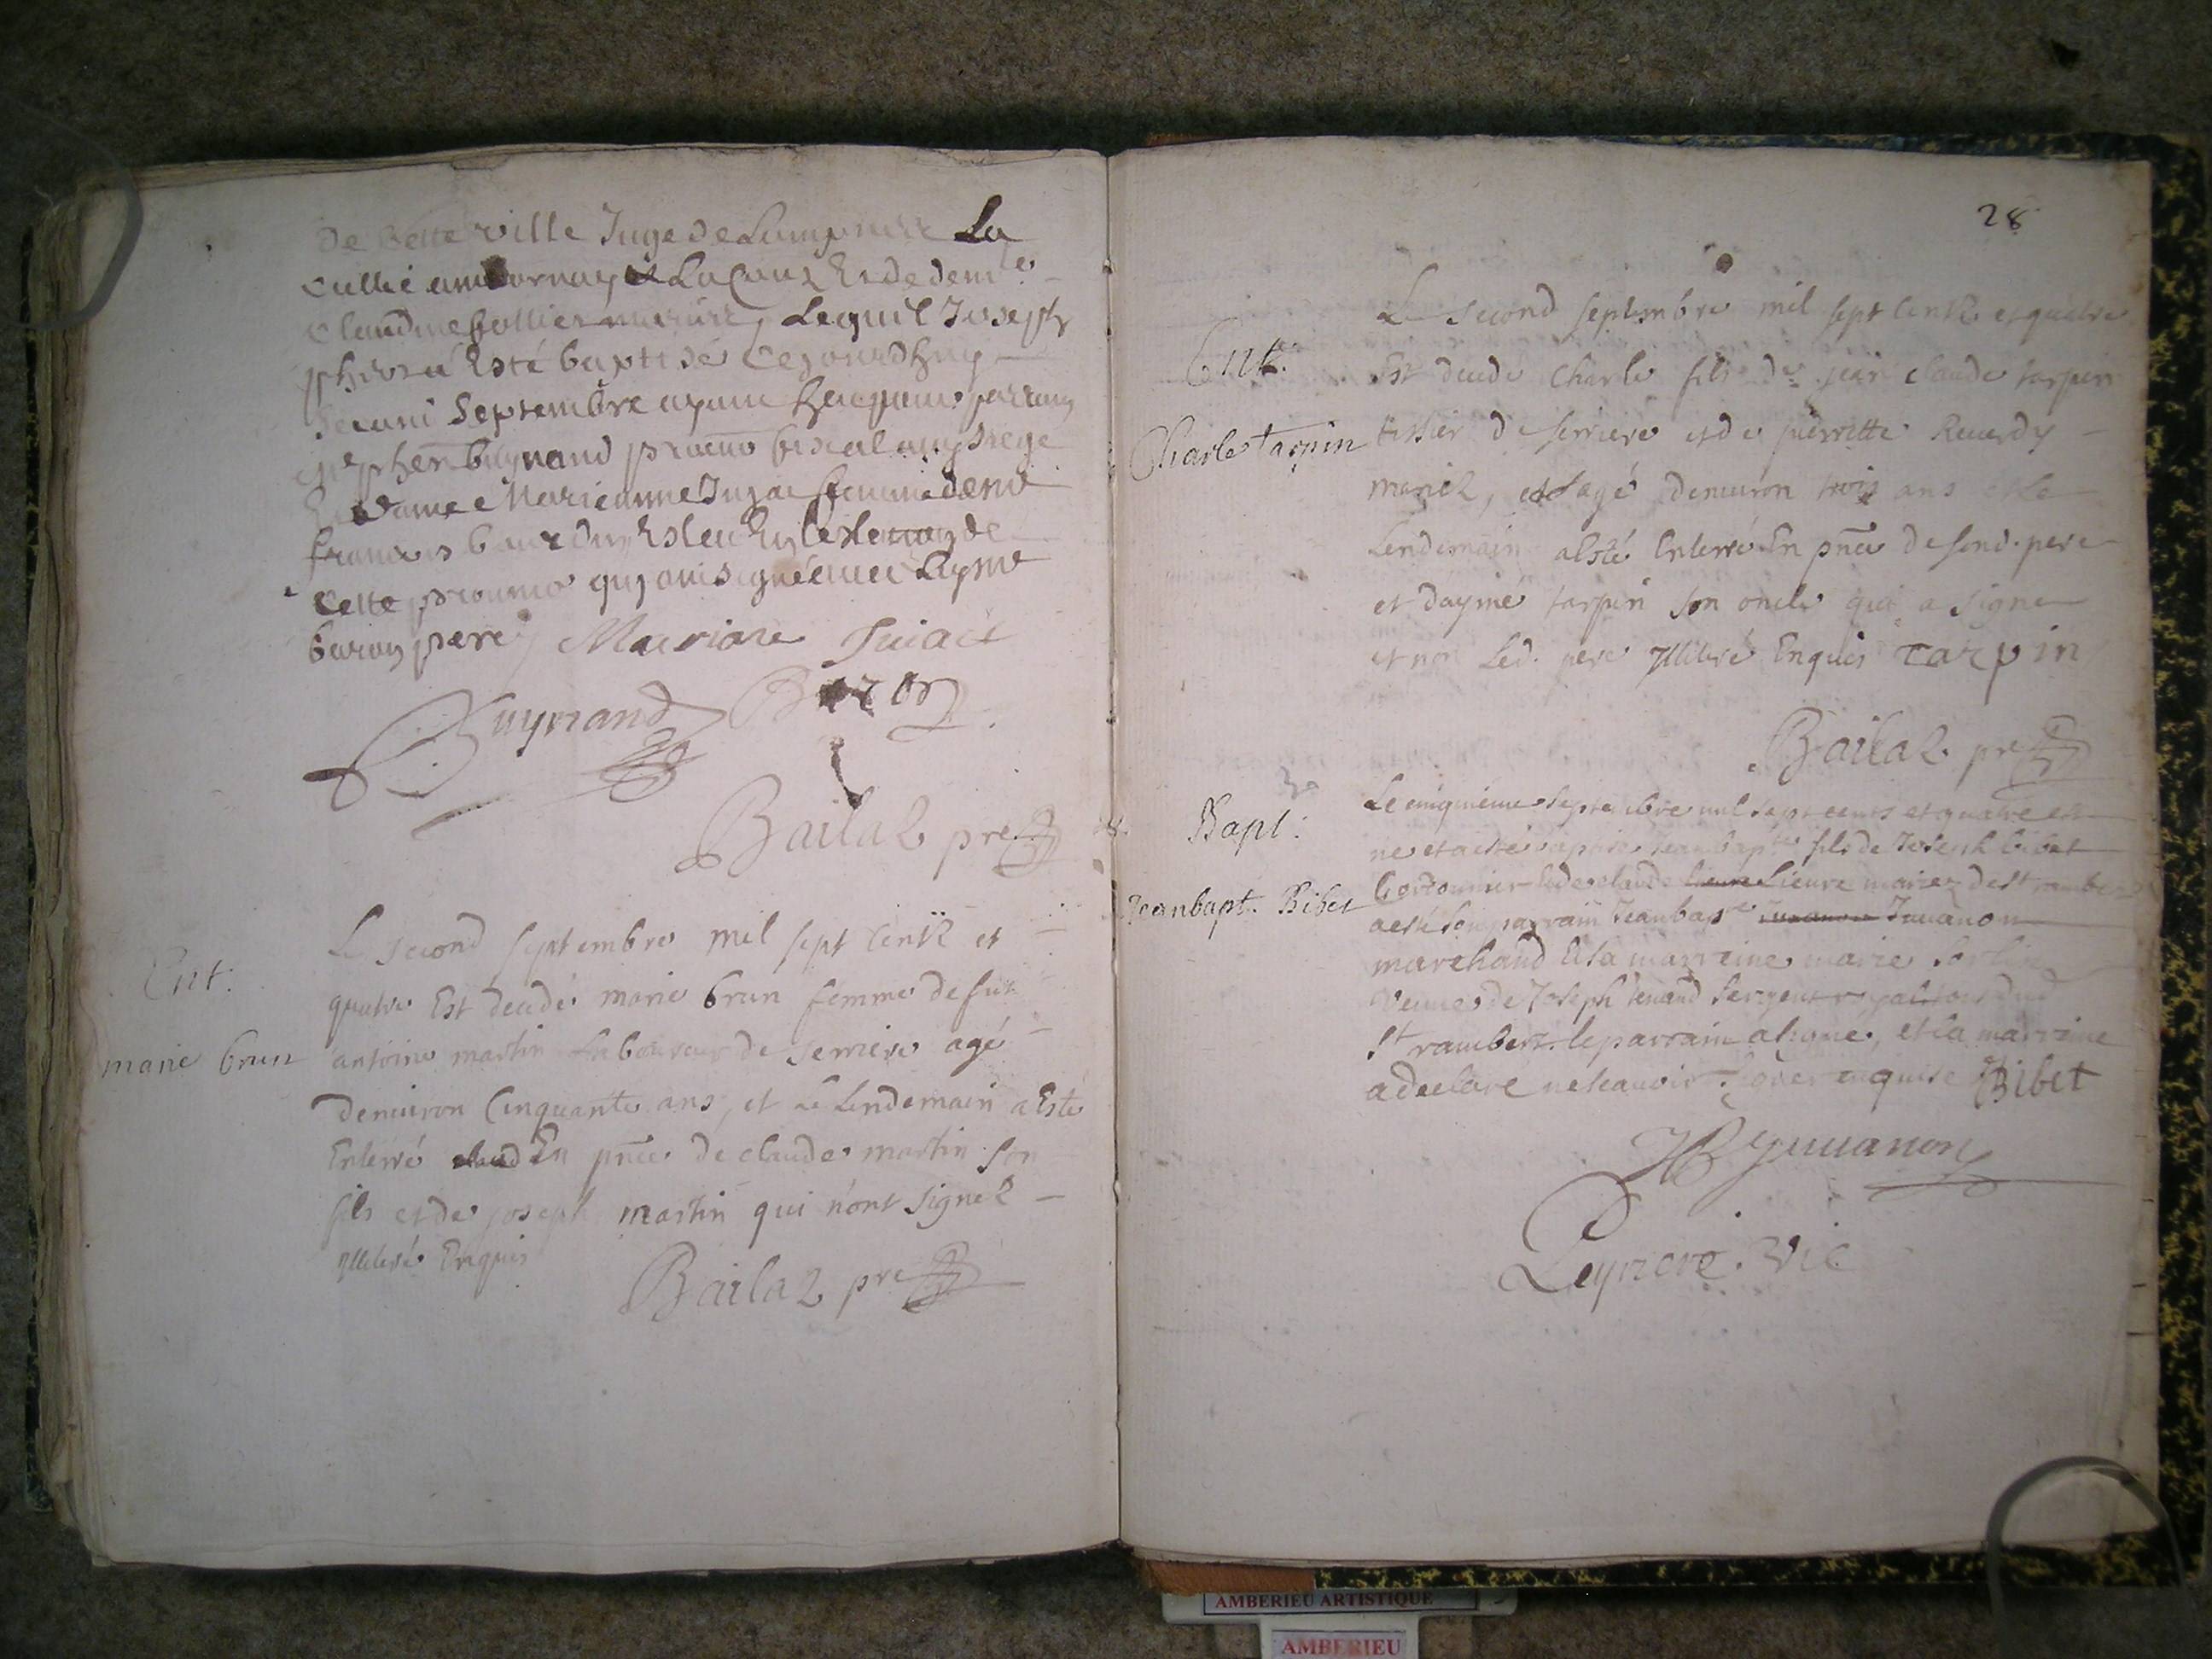 De cette ville Juge de La
Lequel Joseph
Esté baptisé Cejourdhuy
Septembre
buynand fiscal
Dame Marianne femme de mr
francois
Cette qui ont signé avec
baron pere Mariane Juiact
Buynand Baron
Bailaz pre
Ent:
marie brun
Le second septembre mil sept Centz et
quatre Est decedé marie brun femme de fut
antoine martin Laboureur de serriere agé
denuiron Cinquante ans, et Le Lendemain a Esté
Enterré En pnce de claude martin son
fils et de joseph martin qui n'ont signez
Illiteré Enquis
Bailaz pre
28
Ent:
Charle tarpin
Le second septembre mil sept Centz et quatre
Est decedé Charle fils de jean claude tarpin
tissier de serriere et de pierrette Reuerdy
mariez, agé denuiron trois ans et Le
Lendemain a Esté Enterré En pnce de sond. pere
et d'aymé tarpin son oncle qui a signe
et non Led. pere Illiteré Enquis Tarpin
Bailaz pre
Bapt:
Jeanbapt. Bibet
Le cinquiéme septembre mil sept cents et quatre est
ne et a esté baptisé Jean bapte fils de Joseph bibet
Cordonnier et de claude Lieure mariez de st rambert
a esté son parrain Jean bapte Juuanon
marchand et sa marreine marie
veuue de Joseph tenand sergent royal dud
st rambert. le parrain a signe, et la marreine
a declare ne scauoir signer enquise Bibet
JB Juuanon
Leynere. Vic
AMBERIEU ARTISTIQUE
AMBERIEU